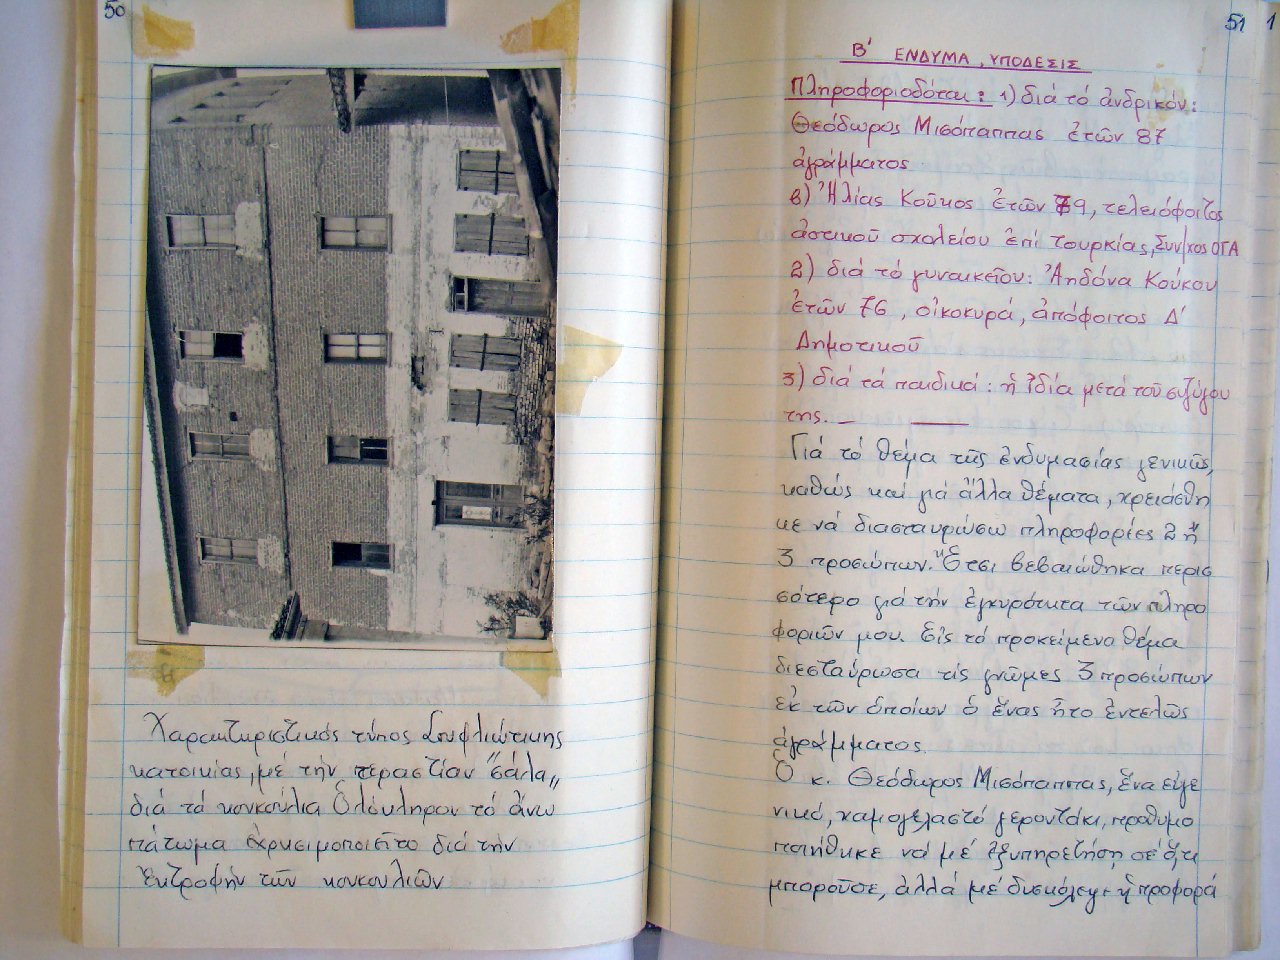 50
Χαρακτηριστικός τύπος Σουφλιώτικης
κατοικίας, μέ τήν τεραστίαν "σάλα„
διά τά κουκούλια Ὁλόκληρον τό ἄνω
πάτωμα ἐχρησιμοποιεῖτο διά τήν
ἐκτροφήν τῶν κουκουλιῶν
51
Β' ΕΝΔΥΜΑ, ΥΠΟΔΕΣΙΣ
Πληροφοριοδόται: 1) διά τό ἀνδρικόν:
Θεόδωρος Μισόπαππας ἐτῶν 87
ἀγράμματος
β) Ἠλίας Κοῦκος ἐτῶν 79, τελειόφοιτος
ἀστικοῦ σχολείου ἐπί τουρκίας, Συν/χος ΟΓΑ
2) διά τό γυναικεῖον: Ἀηδόνα Κούκου
ἐτῶν 76, οἰκοκυρά, ἀπόφοιτος Δ'
Δημοτικοῦ
3) διά τά παιδικά: ἡ ἰδία μετά τοῦ συζύγου
της.
Γιά τό θέμα τῆς ἐνδυμασίας γενικῶς,
καθώς καί γιά ἄλλα θέματα, χρειάσθη
κε νά διασταυρώσω πληροφορίες 2 ἤ
3 προσώπων. Ἔτσι βεβαιώθηκα περισ
σότερο γιά τήν ἐγκυρότητα τῶν πληρο
φοριῶν μου. Εἰς τό προκείμενο θέμα
διεσταύρωσα τίς γνῶμες 3 προσώπων
ἐκ τῶν ὁποίων ὁ ἕνας ἦτο ἐντελῶς
ἀγράμματος.
Ὁ κ. Θεόδωρος Μισόπαππας, ἕνα εὐγε
νικό, χαμογελαστό γεροντάκι, προθυμο
ποιήθηκε νά μέ ἐξυπηρετήση σέ ὅ,τι
μποροῦσε, ἀλλά μέ δυσκόλεψε ἡ προφορά